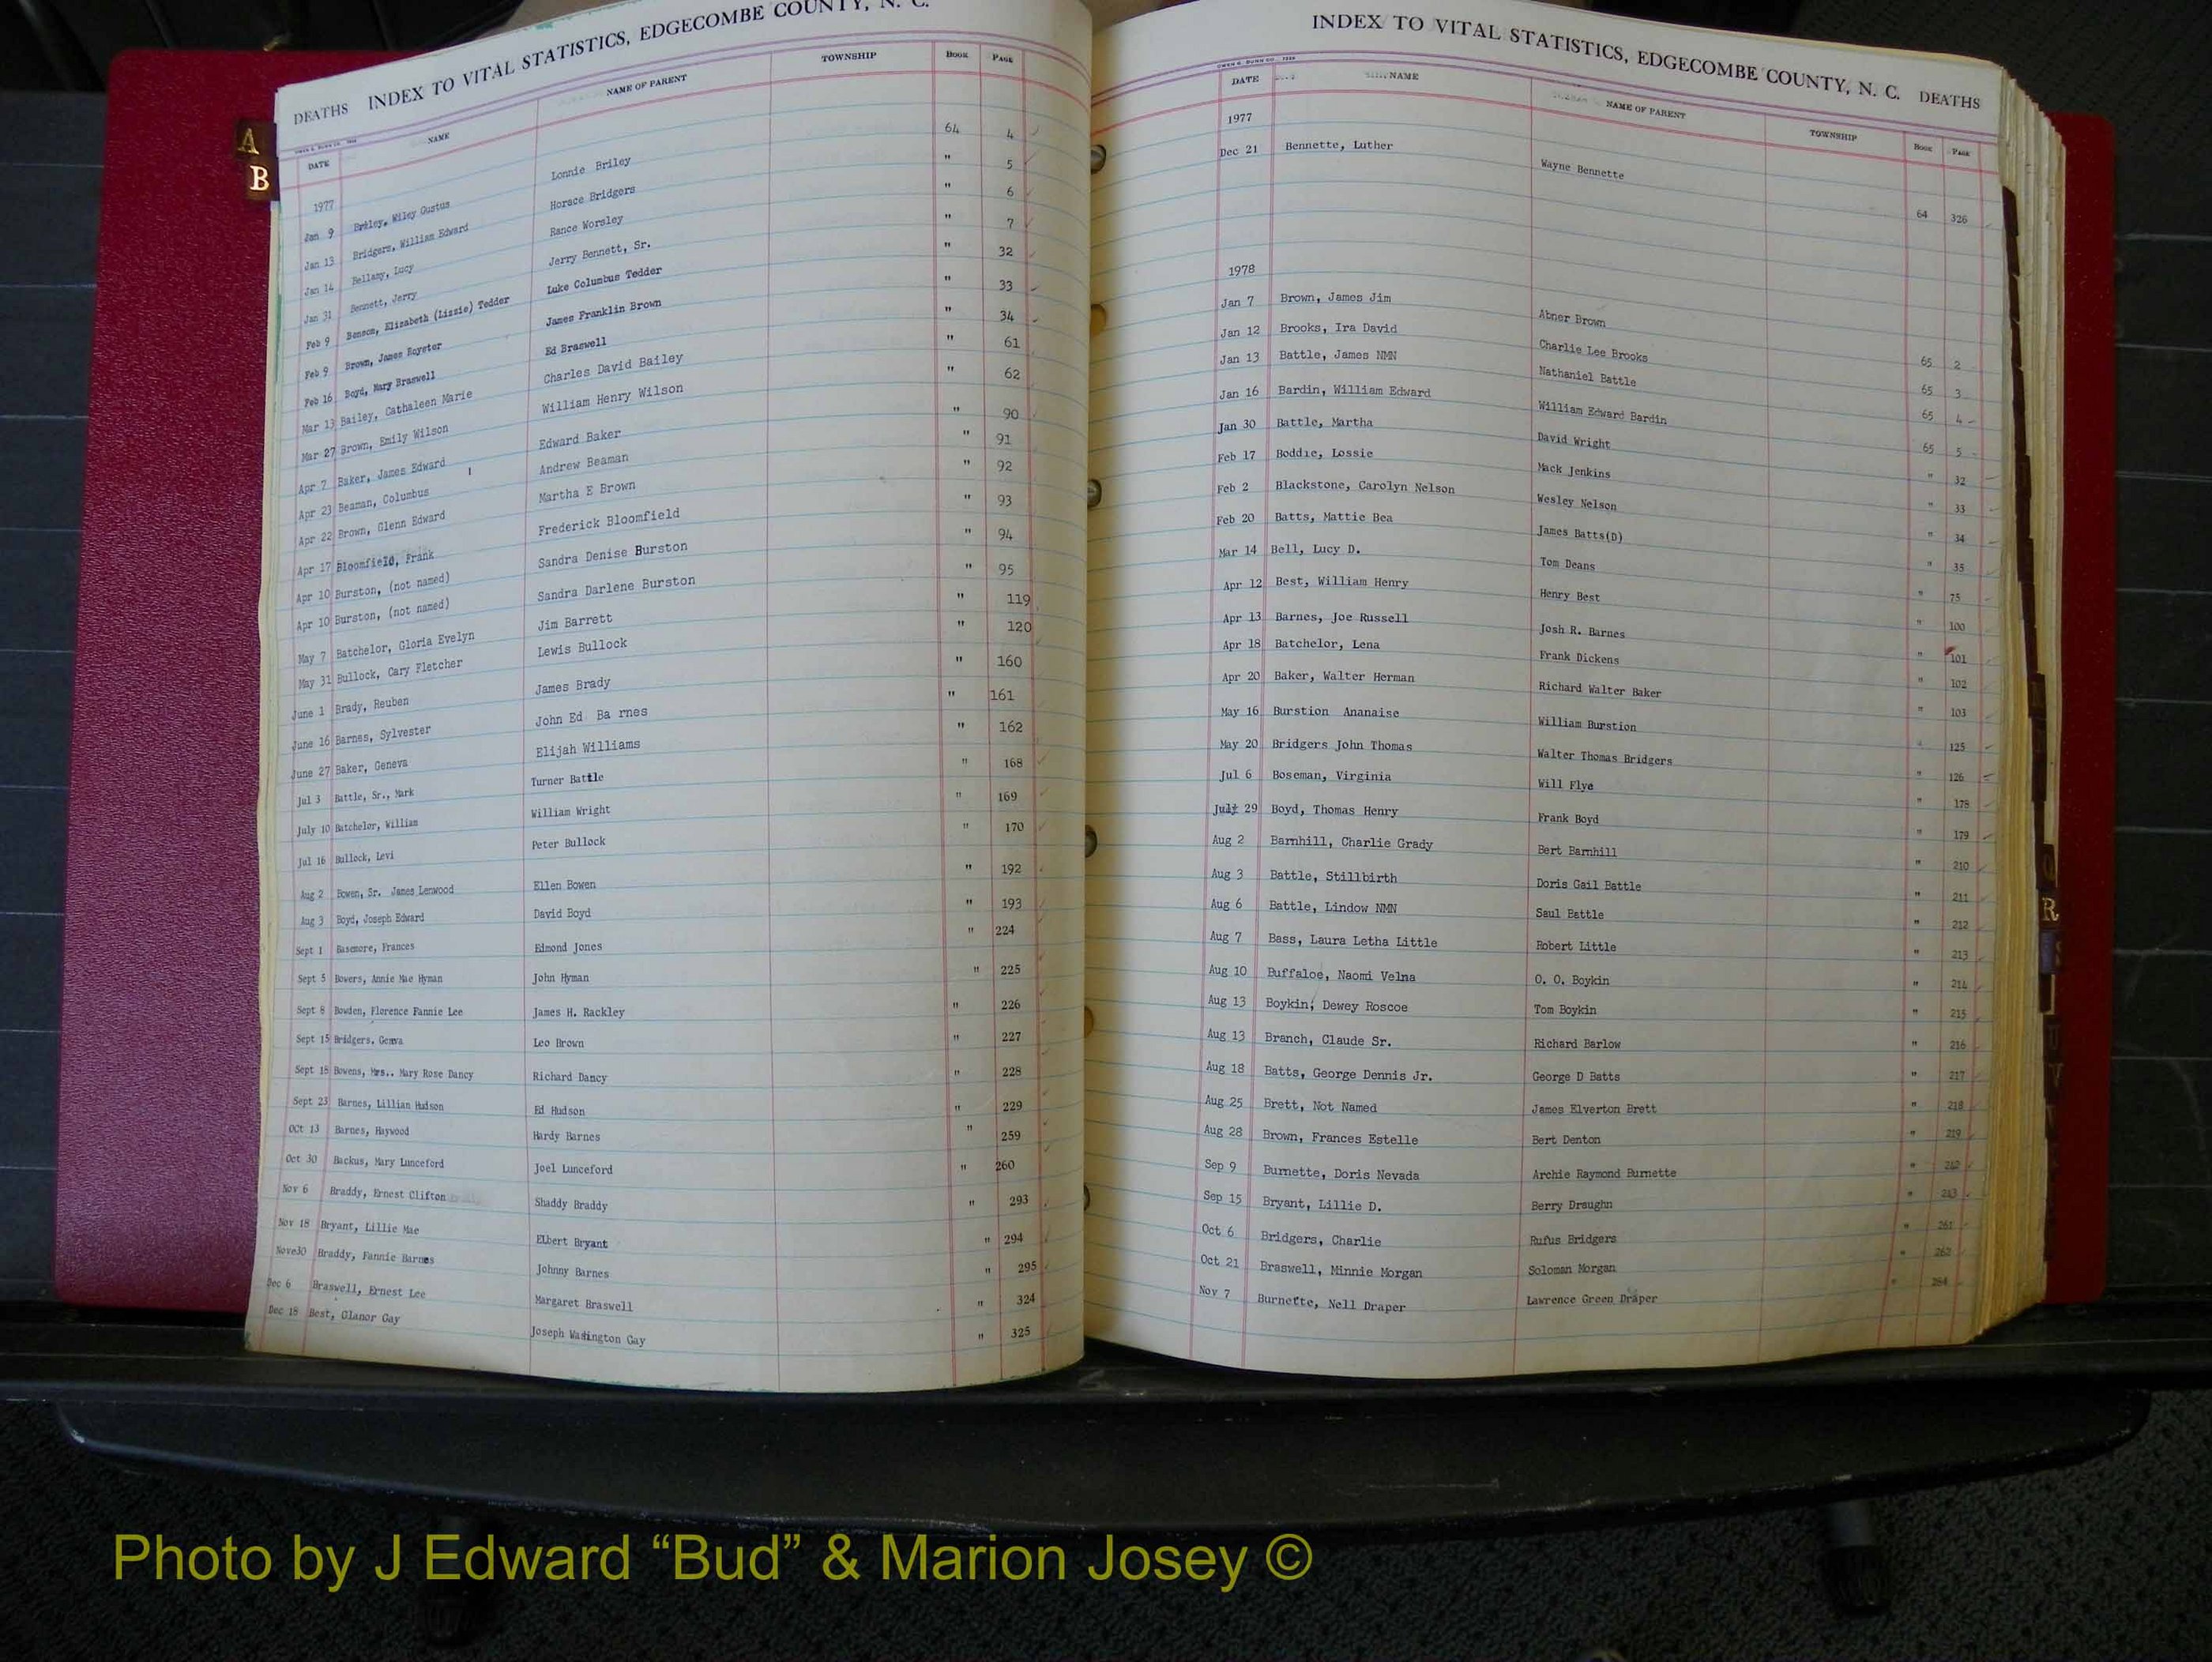 DEATHS INDEX TO VITAL STATISTICS, EDGECOMBE COUNTY, N. C.
DATE NAME NAME OF PARENT TOWNSHIP BOOK PAGE
1977
Jan 9 Briley, Wiley Gustus Lonnie Briley 64 4
Jan 13 Bridgers, William Edward Horace Bridgers " 5
Jan 14 Bellamy, Lucy Rance Worsley " 6
Jan 31 Bennett, Jerry Jerry Bennett, Sr. " 7
Feb 9 Benson, Elizabeth (Lizzie) Tedder Luke Columbus Tedder " 32
Feb 9 Brown, James Royster James Franklin Brown " 33
Feb 16 Boyd, Mary Braswell Ed Braswell " 34
Mar 13 Bailey, Cathaleen Marie Charles David Bailey " 61
Mar 27 Brown, Emily Wilson William Henry Wilson " 62
Apr 7 Baker, James Edward Edward Baker " 90
Apr 23 Beaman, Columbus Andrew Beaman " 91
Apr 22 Brown, Glenn Edward Martha E Brown " 92
Apr 17 Bloomfield, Frank Frederick Bloomfield " 93
Apr 10 Burston, (not named) Sandra Denise Burston " 94
Apr 10 Burston, (not named) Sandra Darlene Burston " 95
May 7 Batchelor, Gloria Evelyn Jim Barrett " 119
May 31 Bullock, Cary Fletcher Lewis Bullock " 120
June 1 Brady, Reuben James Brady " 160
June 16 Barnes, Sylvester John Ed Ba rnes " 161
June 27 Baker, Geneva Elijah Williams " 162
Jul 3 Battle, Sr., Mark Turner Battle " 168
July 10 Batchelor, William William Wright " 169
Jul 16 Bullock, Levi Peter Bullock " 170
Aug 2 Bowen, Sr. James Lenwood Ellen Bowen " 192
Aug 3 Boyd, Joseph Edward David Boyd " 193
Sept 1 Basemore, Frances Edmond Jones " 224
Sept 5 Bowers, Annie Mae Hyman John Hyman " 225
Sept 8 Bowden, Florence Fannie Lee James H. Rackley " 226
Sept 15 Bridgers, Geneva Leo Brown " 227
Sept 18 Bowens, Mrs.. Mary Rose Dancy Richard Dancy " 228
Sept 23 Barnes, Lillian Hudson Ed Hudson " 229
Oct 13 Barnes, Haywood Hardy Barnes " 259
Oct 30 Backus, Mary Lunceford Joel Lunceford " 260
Nov 6 Braddy, Ernest Clifton Shaddy Braddy " 293
Nov 18 Bryant, Lillie Mae Elbert Bryant " 294
Nove30 Braddy, Fannie Barnes Johnny Barnes " 295
Dec 6 Braswell, Ernest Lee Margaret Braswell " 324
Dec 18 Best, Glanor Gay Joseph Washington Gay " 325
INDEX TO VITAL STATISTICS, EDGECOMBE COUNTY, N. C. DEATHS
DATE NAME NAME OF PARENT TOWNSHIP BOOK PAGE
1977
Dec 21 Bennette, Luther Wayne Bennette 64 326
1978
Jan 7 Brown, James Jim Abner Brown 65 2
Jan 12 Brooks, Ira David Charlie Lee Brooks 65 3
Jan 13 Battle, James NMN Nathaniel Battle 65 4
Jan 16 Bardin, William Edward William Edward Bardin 65 5
Jan 30 Battle, Martha David Wright " 32
Feb 17 Boddie, Lossie Mack Jenkins " 33
Feb 2 Blackstone, Carolyn Nelson Wesley Nelson " 34
Feb 20 Batts, Mattie Bea James Batts(D) " 35
Mar 14 Bell, Lucy D. Tom Deans " 75
Apr 12 Best, William Henry Henry Best " 100
Apr 13 Barnes, Joe Russell Josh R. Barnes " 101
Apr 18 Batchelor, Lena Frank Dickens " 102
Apr 20 Baker, Walter Herman Richard Walter Baker " 103
May 16 Burstion Ananaise William Burstion " 125
May 20 Bridgers John Thomas Walter Thomas Bridgers " 126
Jul 6 Boseman, Virginia Will Flye " 178
29 Boyd, Thomas Henry Frank Boyd " 179
Aug 2 Barnhill, Charlie Grady Bert Barnhill " 210
Aug 3 Battle, Stillbirth Doris Gail Battle " 211
Aug 6 Battle, Lindow NMN Saul Battle " 212
Aug 7 Bass, Laura Letha Little Robert Little " 213
Aug 10 Buffaloe, Naomi Velna O. O. Boykin " 214
Aug 13 Boykin, Dewey Roscoe Tom Boykin " 215
Aug 13 Branch, Claude Sr. Richard Barlow " 216
Aug 18 Batts, George Dennis Jr. George D Batts " 217
Aug 25 Brett, Not Named James Elverton Brett " 218
Aug 28 Brown, Frances Estelle Bert Denton " 219
Sep 9 Burnette, Doris Nevada Archie Raymond Burnette "
Sep 15 Bryant, Lillie D. Berry Draughn "
Oct 6 Bridgers, Charlie Rufus Bridgers "
Oct 21 Braswell, Minnie Morgan Soloman Morgan "
Nov 7 Burnette, Nell Draper Lawrence Green Draper "
A
B
R
Photo by J Edward “Bud” & Marion Josey ©